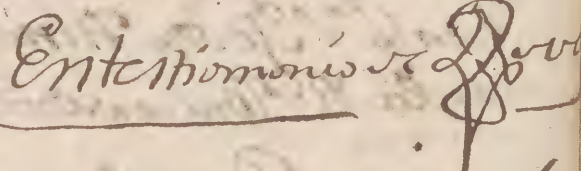 En testiomonio de